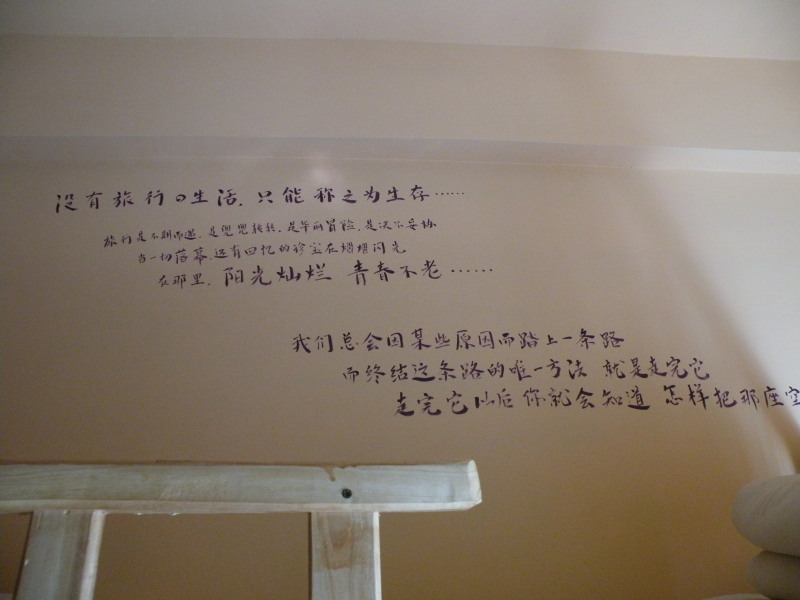 没有旅行的生活，只能称之为生存……
旅行是不期而遇，是兜兜转转，是华丽冒险，是决不妥协
当一切落幕，还有回忆的珍宝在熠熠闪光
在那里，阳光灿烂 青春不老……
我们总会因某些原因而踏上一条路
而终结这条路的唯一方法 就是走完它
走完它以后 你就会知道 怎样把那座空